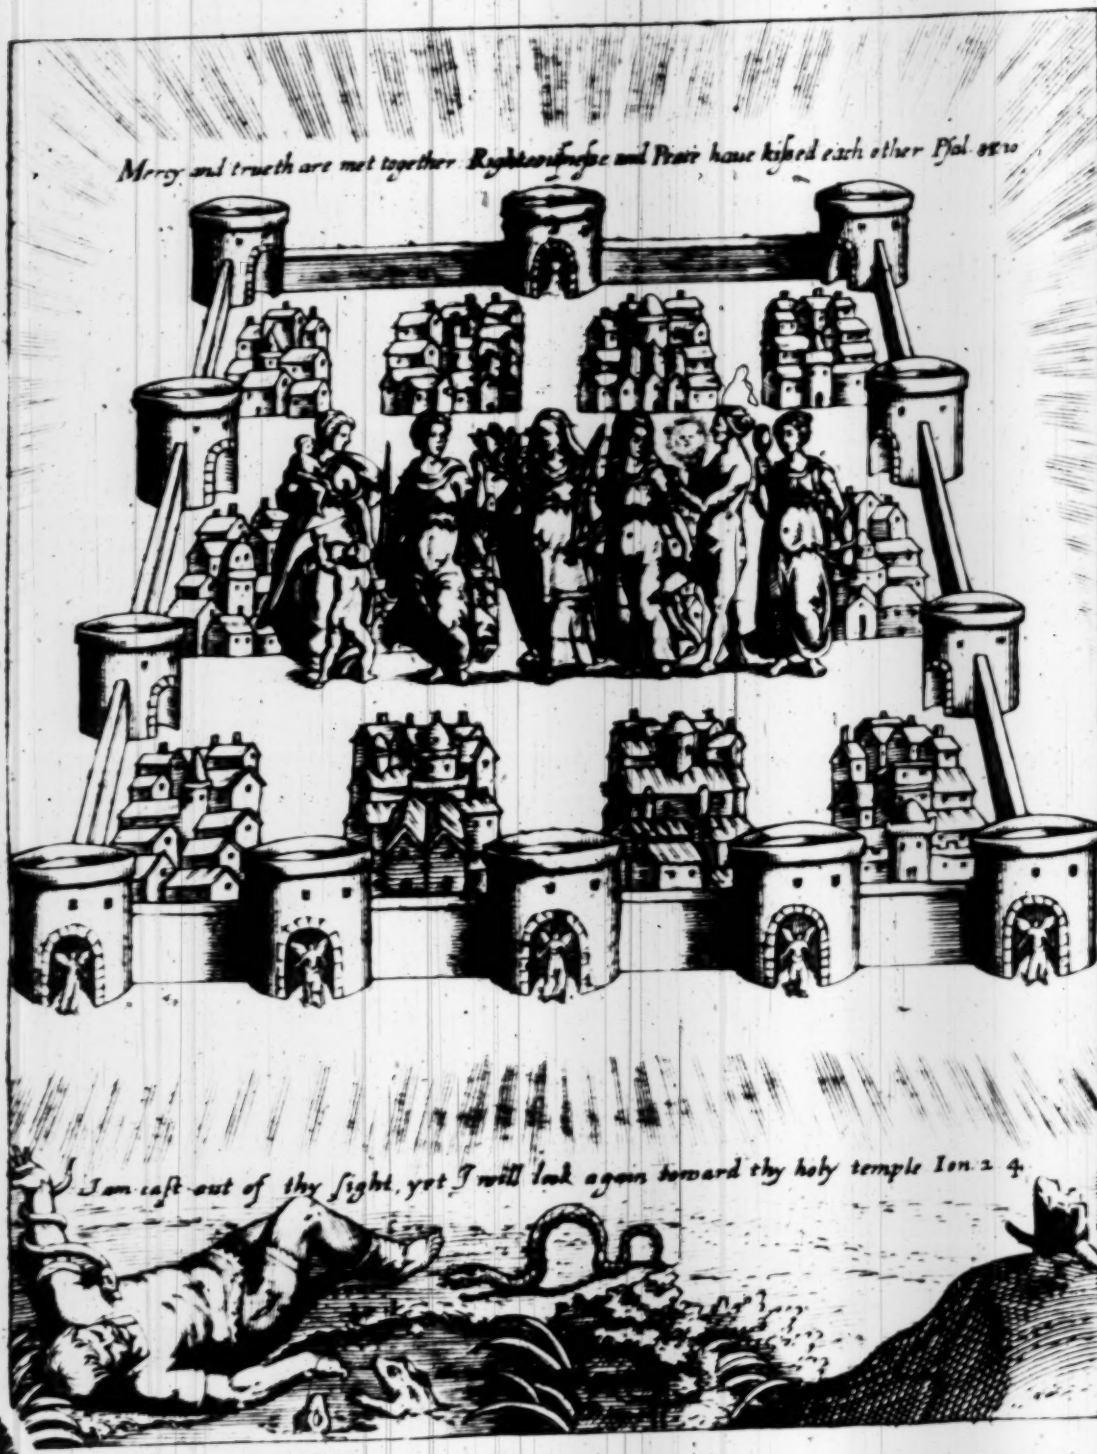 Mercy and trueth are met together Righteousnesse and Peace haue kissed each other Psal. 85 10
I am cast out of thy sight, yet I will look again toward thy holy temple Ion. 2 4